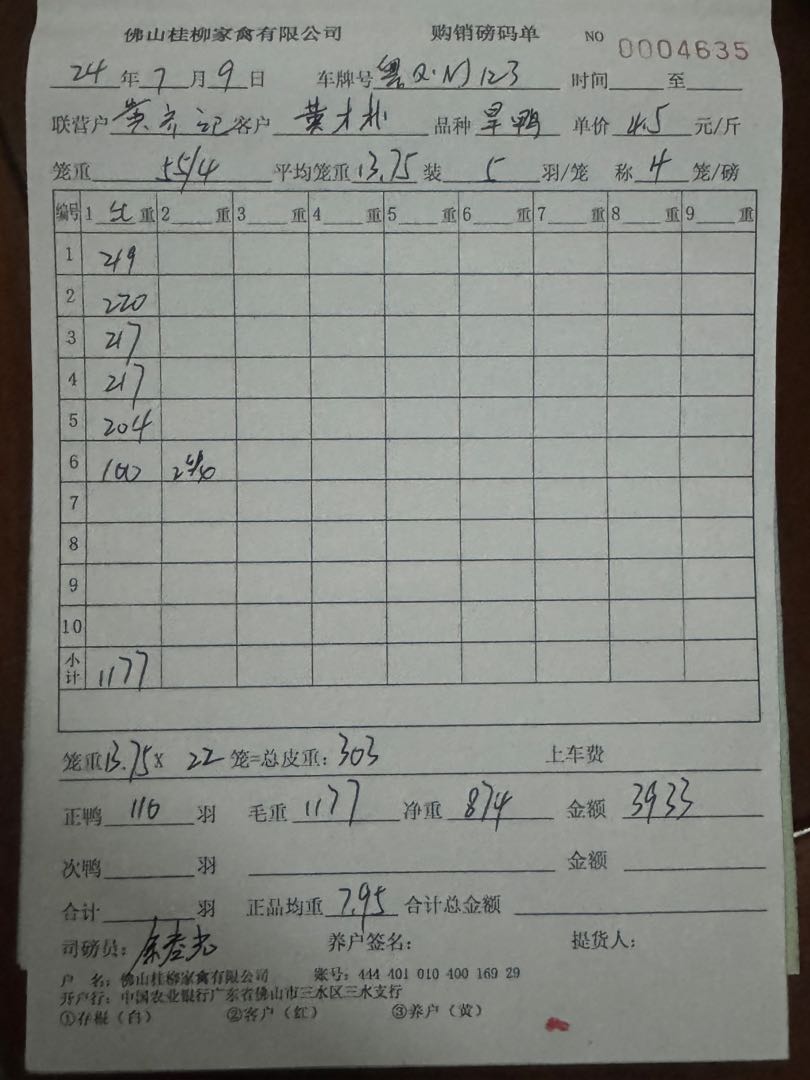 佛山桂柳家禽有限公司 购销磅码单 NO 0004635
24年7月9日 车牌号粤Q·N1123 时间 至
联营户 客户 黄才 品种 旱鸭 单价 4.5 元/斤
笼重 55/4 平均笼重 13.75 装 5 羽/笼 称 4 笼/磅
编号 1 重 2 重 3 重 4 重 5 重 6 重 7 重 8 重 9 重
1 219
2 220
3 217
4 217
5 204
6 100
7
8
9
10
小计 1177
笼重13.75X 22 笼=总皮重: 303 上车费
正鸭 110 羽 毛重 1177 净重 874 金额 3933
次鸭 羽 金额
合计 羽 正品均重 7.95 合计总金额
司磅员: 养户签名: 提货人:
户 名: 佛山桂柳家禽有限公司 账号: 444 401 010 400 169 29
开户行: 中国农业银行广东省佛山市三水区三水支行
①存根(白) ②客户(红) ③养户(黄)